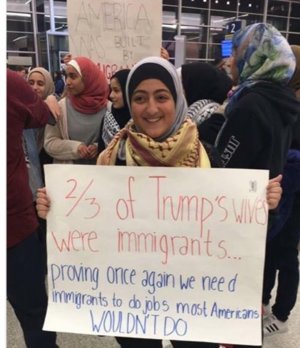 AMERICA
WAS BUILT
2/3 of Trump's wives
were immigrants...
proving once again we need
immigrants to do jobs most Americans
WOULDN'T DO